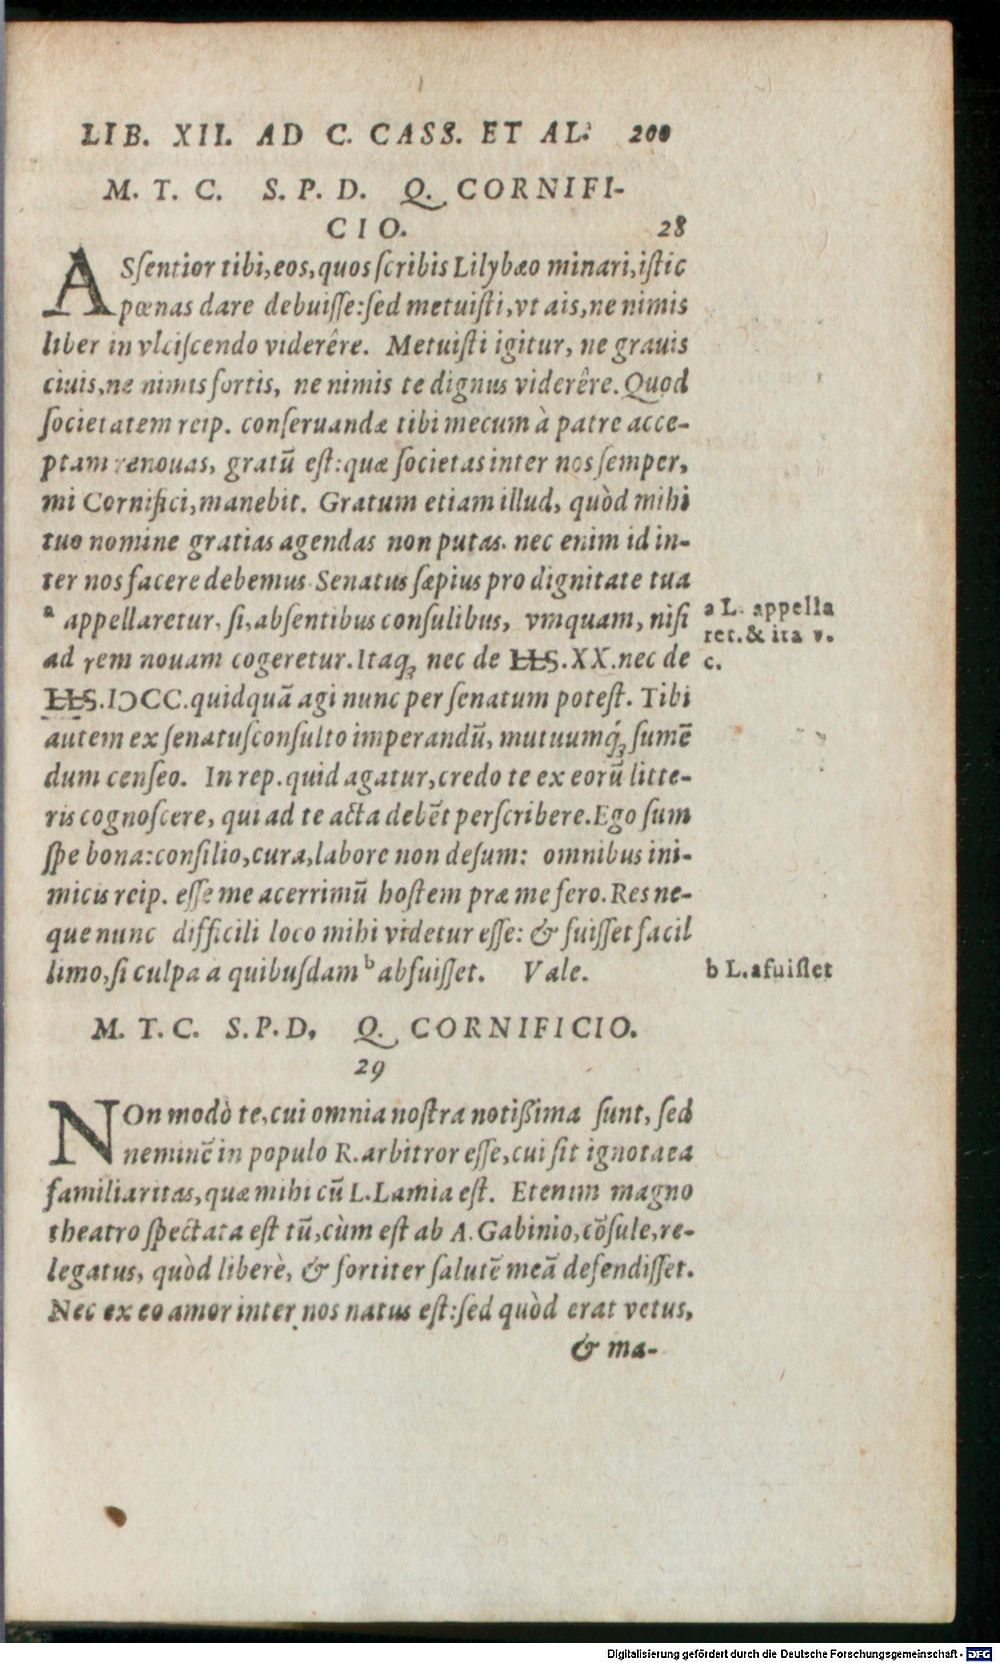 LIB. XII. AD C. CASS. ET AL. 200
M. T. C. S. P. D. Q. CORNIFI-
CIO. 28
ASsentior tibi, eos, quos scribis Lilybæo minari, istic
pœnas dare debuisse: sed metuisti, vt ais, ne nimis
liber in vlciscendo viderêre. Metuisti igitur, ne grauis
ciuis, ne nimis fortis, ne nimis te dignus viderêre. Quod
societatem reip. conseruandæ tibi mecum à patre acce-
ptam renouas, gratũ est: quæ societas inter nos semper,
mi Cornifici, manebit. Gratum etiam illud, quòd mihi
tuo nomine gratias agendas non putas. nec enim id in-
ter nos facere debemus. Senatus sæpius pro dignitate tua
ᵃ appellaretur, si, absentibus consulibus, vmquam, nisi
a L. appella
ret. & ita v.
ad rem nouam cogeretur. Itaq; nec de HS. XX. nec de
c.
HS. IↃCC. quidquã agi nunc per senatum potest. Tibi
autem ex senatusconsulto imperandũ, mutuumq́; sumẽ
dum censeo. In rep. quid agatur, credo te ex eorũ litte-
ris cognoscere, qui ad te acta debẽt perscribere. Ego sum
spe bona: consilio, cura, labore non desum: omnibus ini-
micis reip. esse me acerrimũ hostem præ me fero. Res ne-
que nunc difficili loco mihi videtur esse: & fuisset facil
limo, si culpa a quibusdam ᵇ abfuisset. Vale.
b L. afuisset
M. T. C. S. P. D, Q. CORNIFICIO.
29
NOn modò te, cui omnia nostra notißima sunt, sed
neminẽ in populo R. arbitror esse, cui sit ignota ea
familiaritas, quæ mihi cũ L. Lamia est. Etenim magno
theatro spectata est tũ, cùm est ab A. Gabinio, cõsule, re-
legatus, quòd liberè, & fortiter salutẽ meã defendisset.
Nec ex eo amor inter nos natus est: sed quòd erat vetus,
& ma-
Digitalisierung gefördert durch die Deutsche Forschungsgemeinschaft - DFG